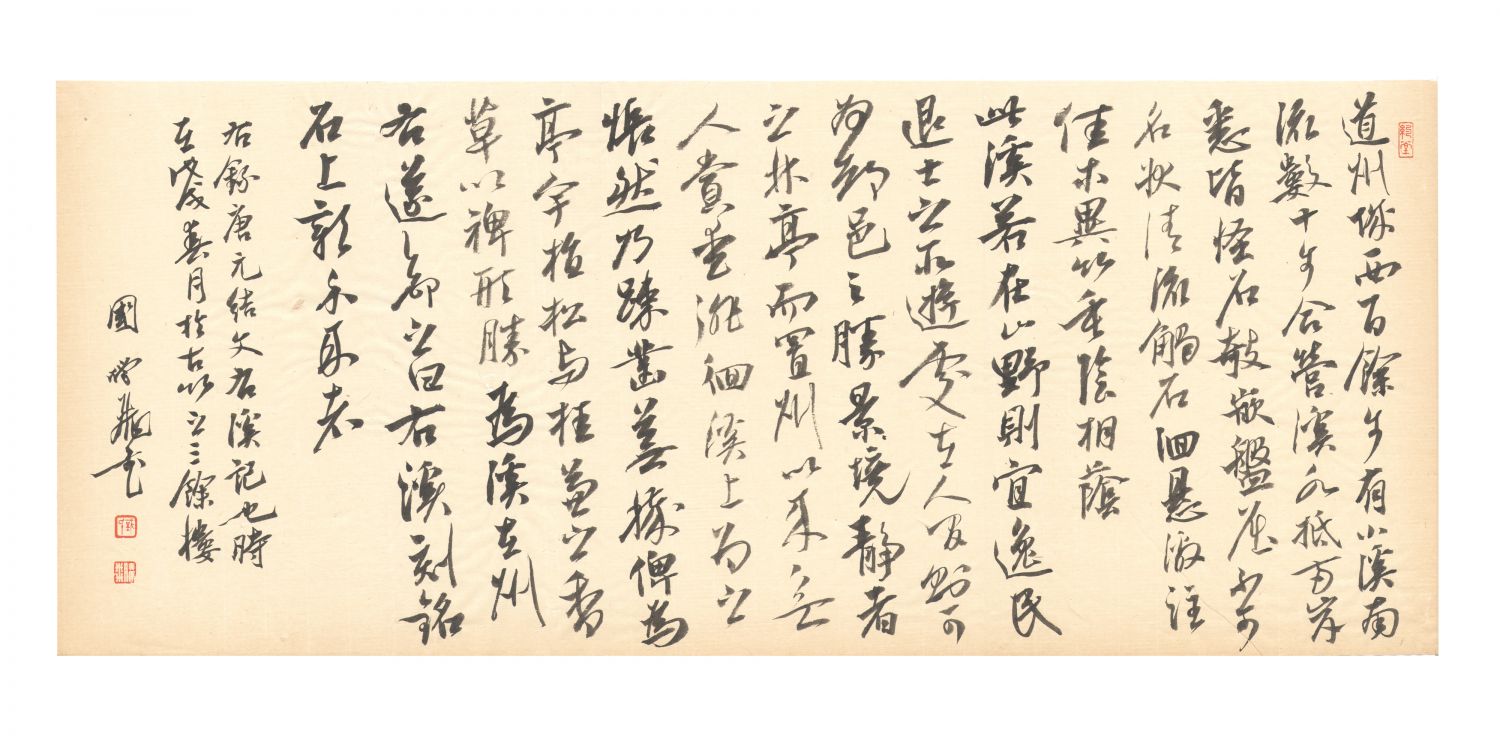 道州城西百餘步有小溪南
流數十步合營溪水抵兩岸
悉皆怪石敧嵌盤屈不可
名狀清流觸石洄懸激注
佳木異竹垂陰相蔭
此溪若在山野則宜逸民
退士之所遊處在人間則可
為都邑之勝景境靜者
之林亭而置州以來無
人賞愛徘徊溪上為之
悵然乃疎鑿蕪穢俾為
亭宇植松與桂兼之香
草以裨形勝為溪在州
右遂命之曰右溪刻銘
石上彰示來者
右錄唐元結文右溪記也時
在戊戌春月於古竹之三餘樓
國 書